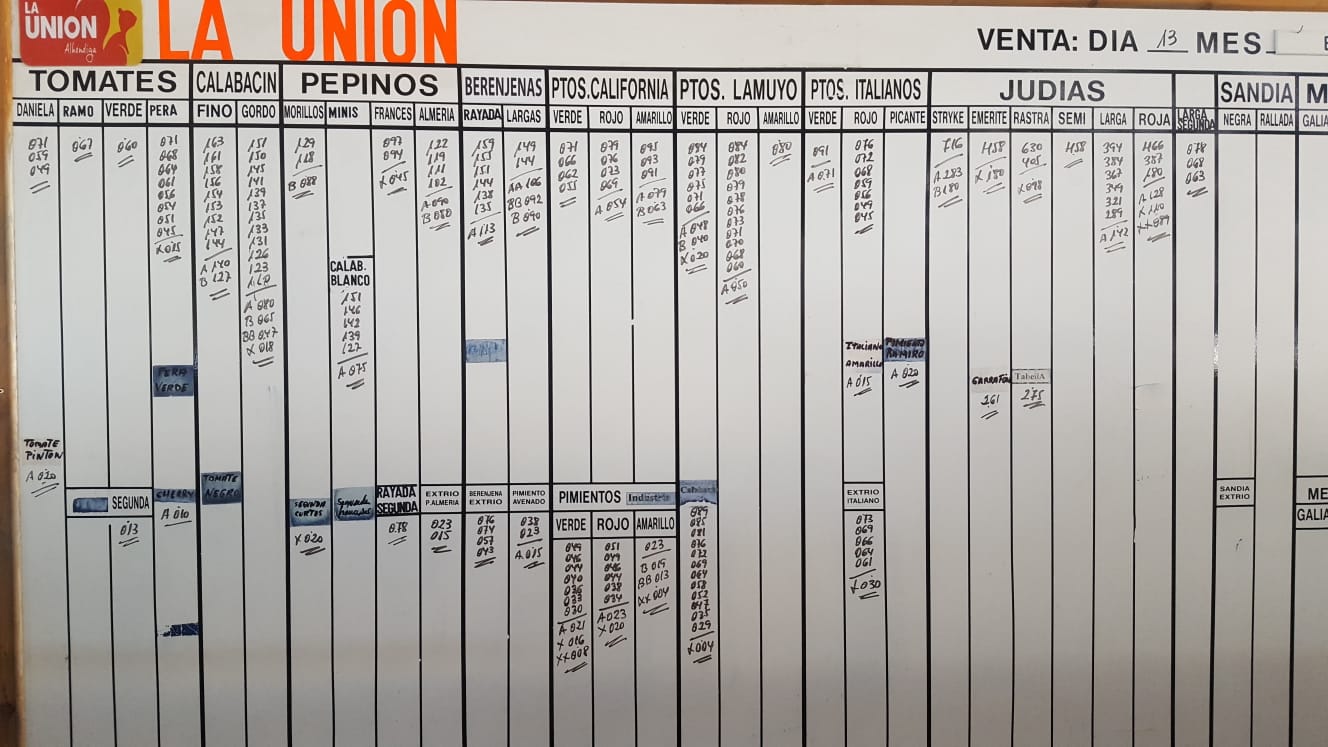 LA
UNION
Alhóndiga
LA UNION
VENTA: DIA 13 MES
TOMATES
CALABACIN
PEPINOS
BERENJENAS
PTOS.CALIFORNIA
PTOS. LAMUYO
PTOS. ITALIANOS
JUDIAS
SANDIA
M
DANIELA RAMO VERDE PERA
FINO GORDO
MORILLOS MINIS FRANCES ALMERIA
RAYADA LARGAS
VERDE ROJO AMARILLO
VERDE ROJO AMARILLO
VERDE ROJO PICANTE
STRYKE EMERITE RASTRA SEMI LARGA ROJA
LARGA SEGUNDA
NEGRA RALLADA
GALIA
071
059
049
067
060
071
068
064
061
056
054
051
045
X025
163
161
158
156
154
153
152
147
144
A 140
B 127
151
150
145
141
139
137
135
133
131
126
123
A 080
B 065
BB 047
X 018
129
118
B 088
CALAB.
BLANCO
151
146
142
139
127
A 075
097
094
X 045
122
119
111
102
A 090
B 080
159
155
151
144
138
135
A 113
149
144
AA 106
BB 092
B 090
071
066
062
055
079
076
073
069
A 054
095
093
091
A 079
B 063
084
079
077
075
071
066
A 048
B 040
X 020
084
082
080
079
078
076
073
071
070
068
060
A 050
080
091
A 071
076
072
068
059
056
049
045
716
A 283
B 180
458
X 180
630
405
X 098
458
394
384
367
349
321
289
A 142
466
387
180
A 128
X 110
XX 089
078
068
063
PERA
VERDE
ITALIANO
AMARILLO
A 015
PIMIENTO
RAMIRO
A 020
GARRAFON
261
TabellA
275
TOMATE
PINTON
A 020
SEGUNDA
013
CHERRY
A 010
TOMATE
NEGRO
SEGUNDA
CORTOS
X 020
Segunda
RAYADA
SEGUNDA
078
EXTRIO
P.ALMERIA
023
015
BERENJENA
EXTRIO
076
074
057
043
PIMIENTO
AVENADO
038
023
A 015
PIMIENTOS Industria
VERDE ROJO AMARILLO
049
046
044
040
036
033
030
A 021
X 016
XX 008
051
049
046
044
038
034
A 023
X 020
023
B 019
BB 013
XX 004
089
085
081
076
072
069
064
058
052
047
035
029
X 004
EXTRIO
ITALIANO
073
069
066
064
061
X 030
SANDIA
EXTRIO
ME
GALIA